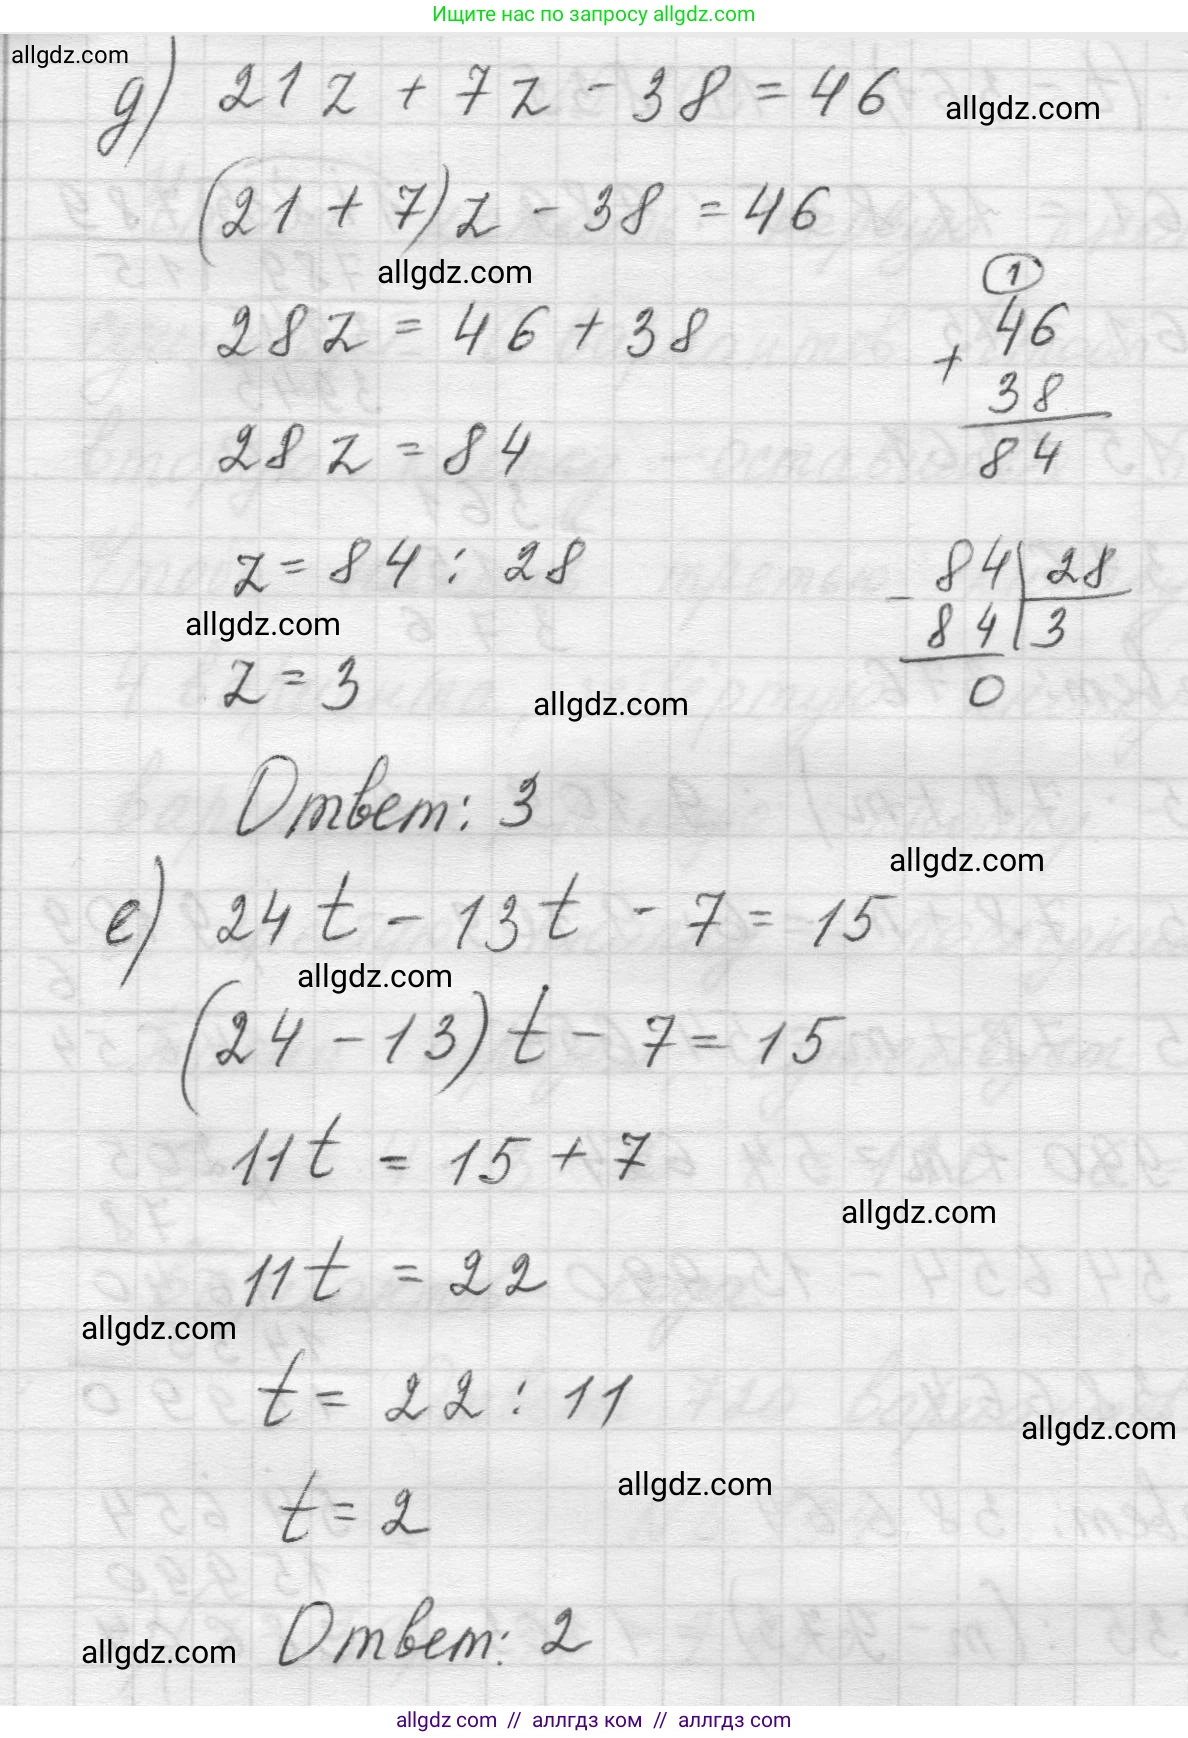 Ищите нас по запросу allgdz.com
allgdz.com
д) 21z + 7z - 38 = 46
allgdz.com
(21 + 7)z - 38 = 46
allgdz.com
28z = 46 + 38
1
46
+
38
84
28z = 84
z = 84 : 28
- 84 | 28
84 | 3
0
allgdz.com
z = 3
allgdz.com
Ответ: 3
allgdz.com
е) 24t - 13t - 7 = 15
allgdz.com
(24 - 13)t - 7 = 15
11t = 15 + 7
allgdz.com
11t = 22
allgdz.com
t = 22 : 11
allgdz.com
allgdz.com
t = 2
Ответ: 2
allgdz.com
allgdz com // аллгдз ком // аллгдз com